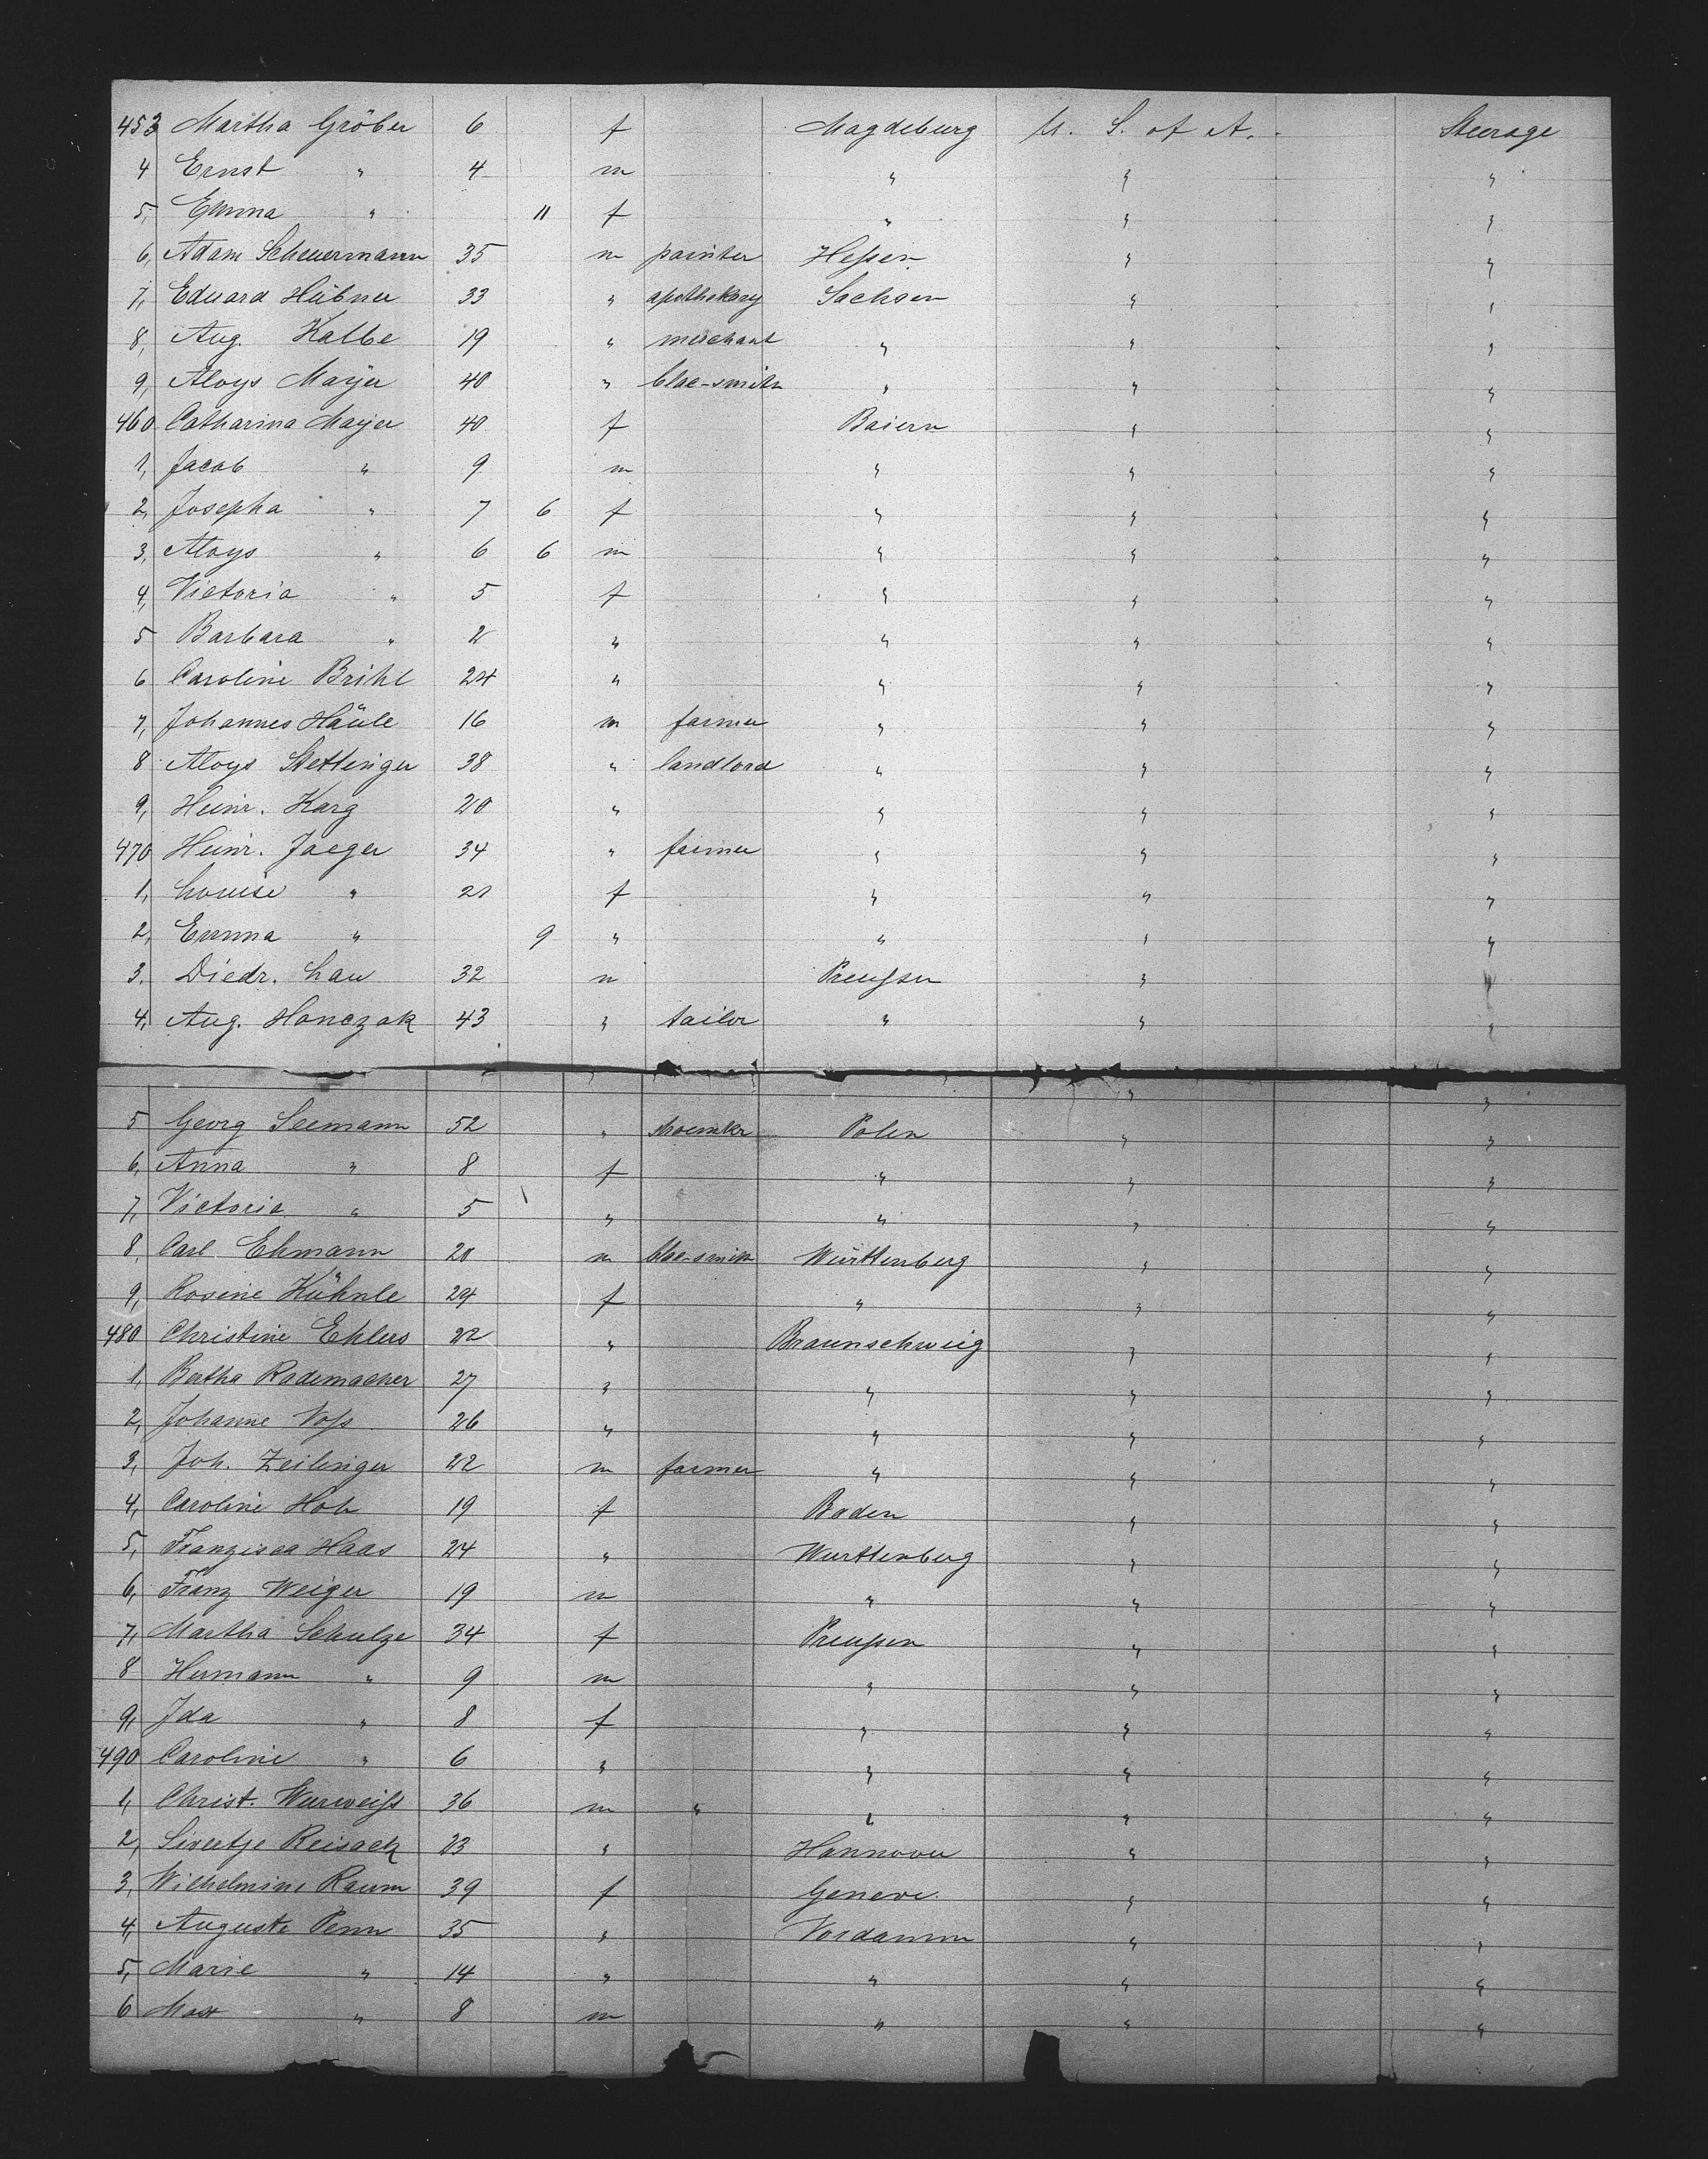 453 Martha Gröber 6 f Magdeburg U. S. of A. Steerage
4 Ernst " 4 m " " "
5, Emma " 11 f " " "
6, Adam Scheuermann 35 m painter Hessen " "
7, Eduard Hübner 33 " apothekary Sachsen " "
8, Aug. Kalbe 19 " merchant " " "
9, Aloys Mayer 40 " blac-smith " " "
460 Catharina Mayer 40 f Baiern " "
1, Jacob " 9 m " " "
2, Josepha " 7 6 f " " "
3, Aloys " 6 6 m " " "
4, Victoria " 5 f " " "
5 Barbara " 2 " " " "
6 Caroline Brihl 24 " " " "
7, Johannes Häule 16 m farmer " " "
8 Aloys Stettinger 38 " landlord " " "
9, Heinr. Karg 20 " " " "
470 Heinr. Jaeger 34 " farmer " " "
1, Louise " 21 f " " "
2, Emma " 9 " " " "
3. Diedr. Lau 32 m Preussen " "
4, Aug. Honczak 43 " tailor " " "
5 Georg Seemann 52 " shoemkr Polen " "
6, Anna " 8 f " " "
7, Victoria " 5 " " " "
8, Carl Ehmann 20 m blac-smith Württenberg " "
9, Rosine Kühnle 24 f " " "
480 Christine Ehlers 22 " Braunschweig " "
1, Bertha Rademacher 27 " " " "
2, Johanne Voss 26 " " " "
3, Joh. Zeilinger 22 m farmer " " "
4, Caroline Hoh 19 f Baden " "
5, Franzisca Haas 24 " Wurttenberg " "
6, Franz Weiger 19 m " " "
7, Martha Schulze 34 f Preussen " "
8 Hermann " 9 m " " "
9, Ida " 8 f " " "
490 Caroline " 6 " " " "
1, Christ. Wurweiss 36 m " " " "
2, Sivertje Reisack 23 " Hannover " "
3, Wilhelmine Raum 39 f Geneve. " "
4, Auguste Penn 35 " Vordamm " "
5, Marie " 14 " " " "
6 Max " 8 m " " "